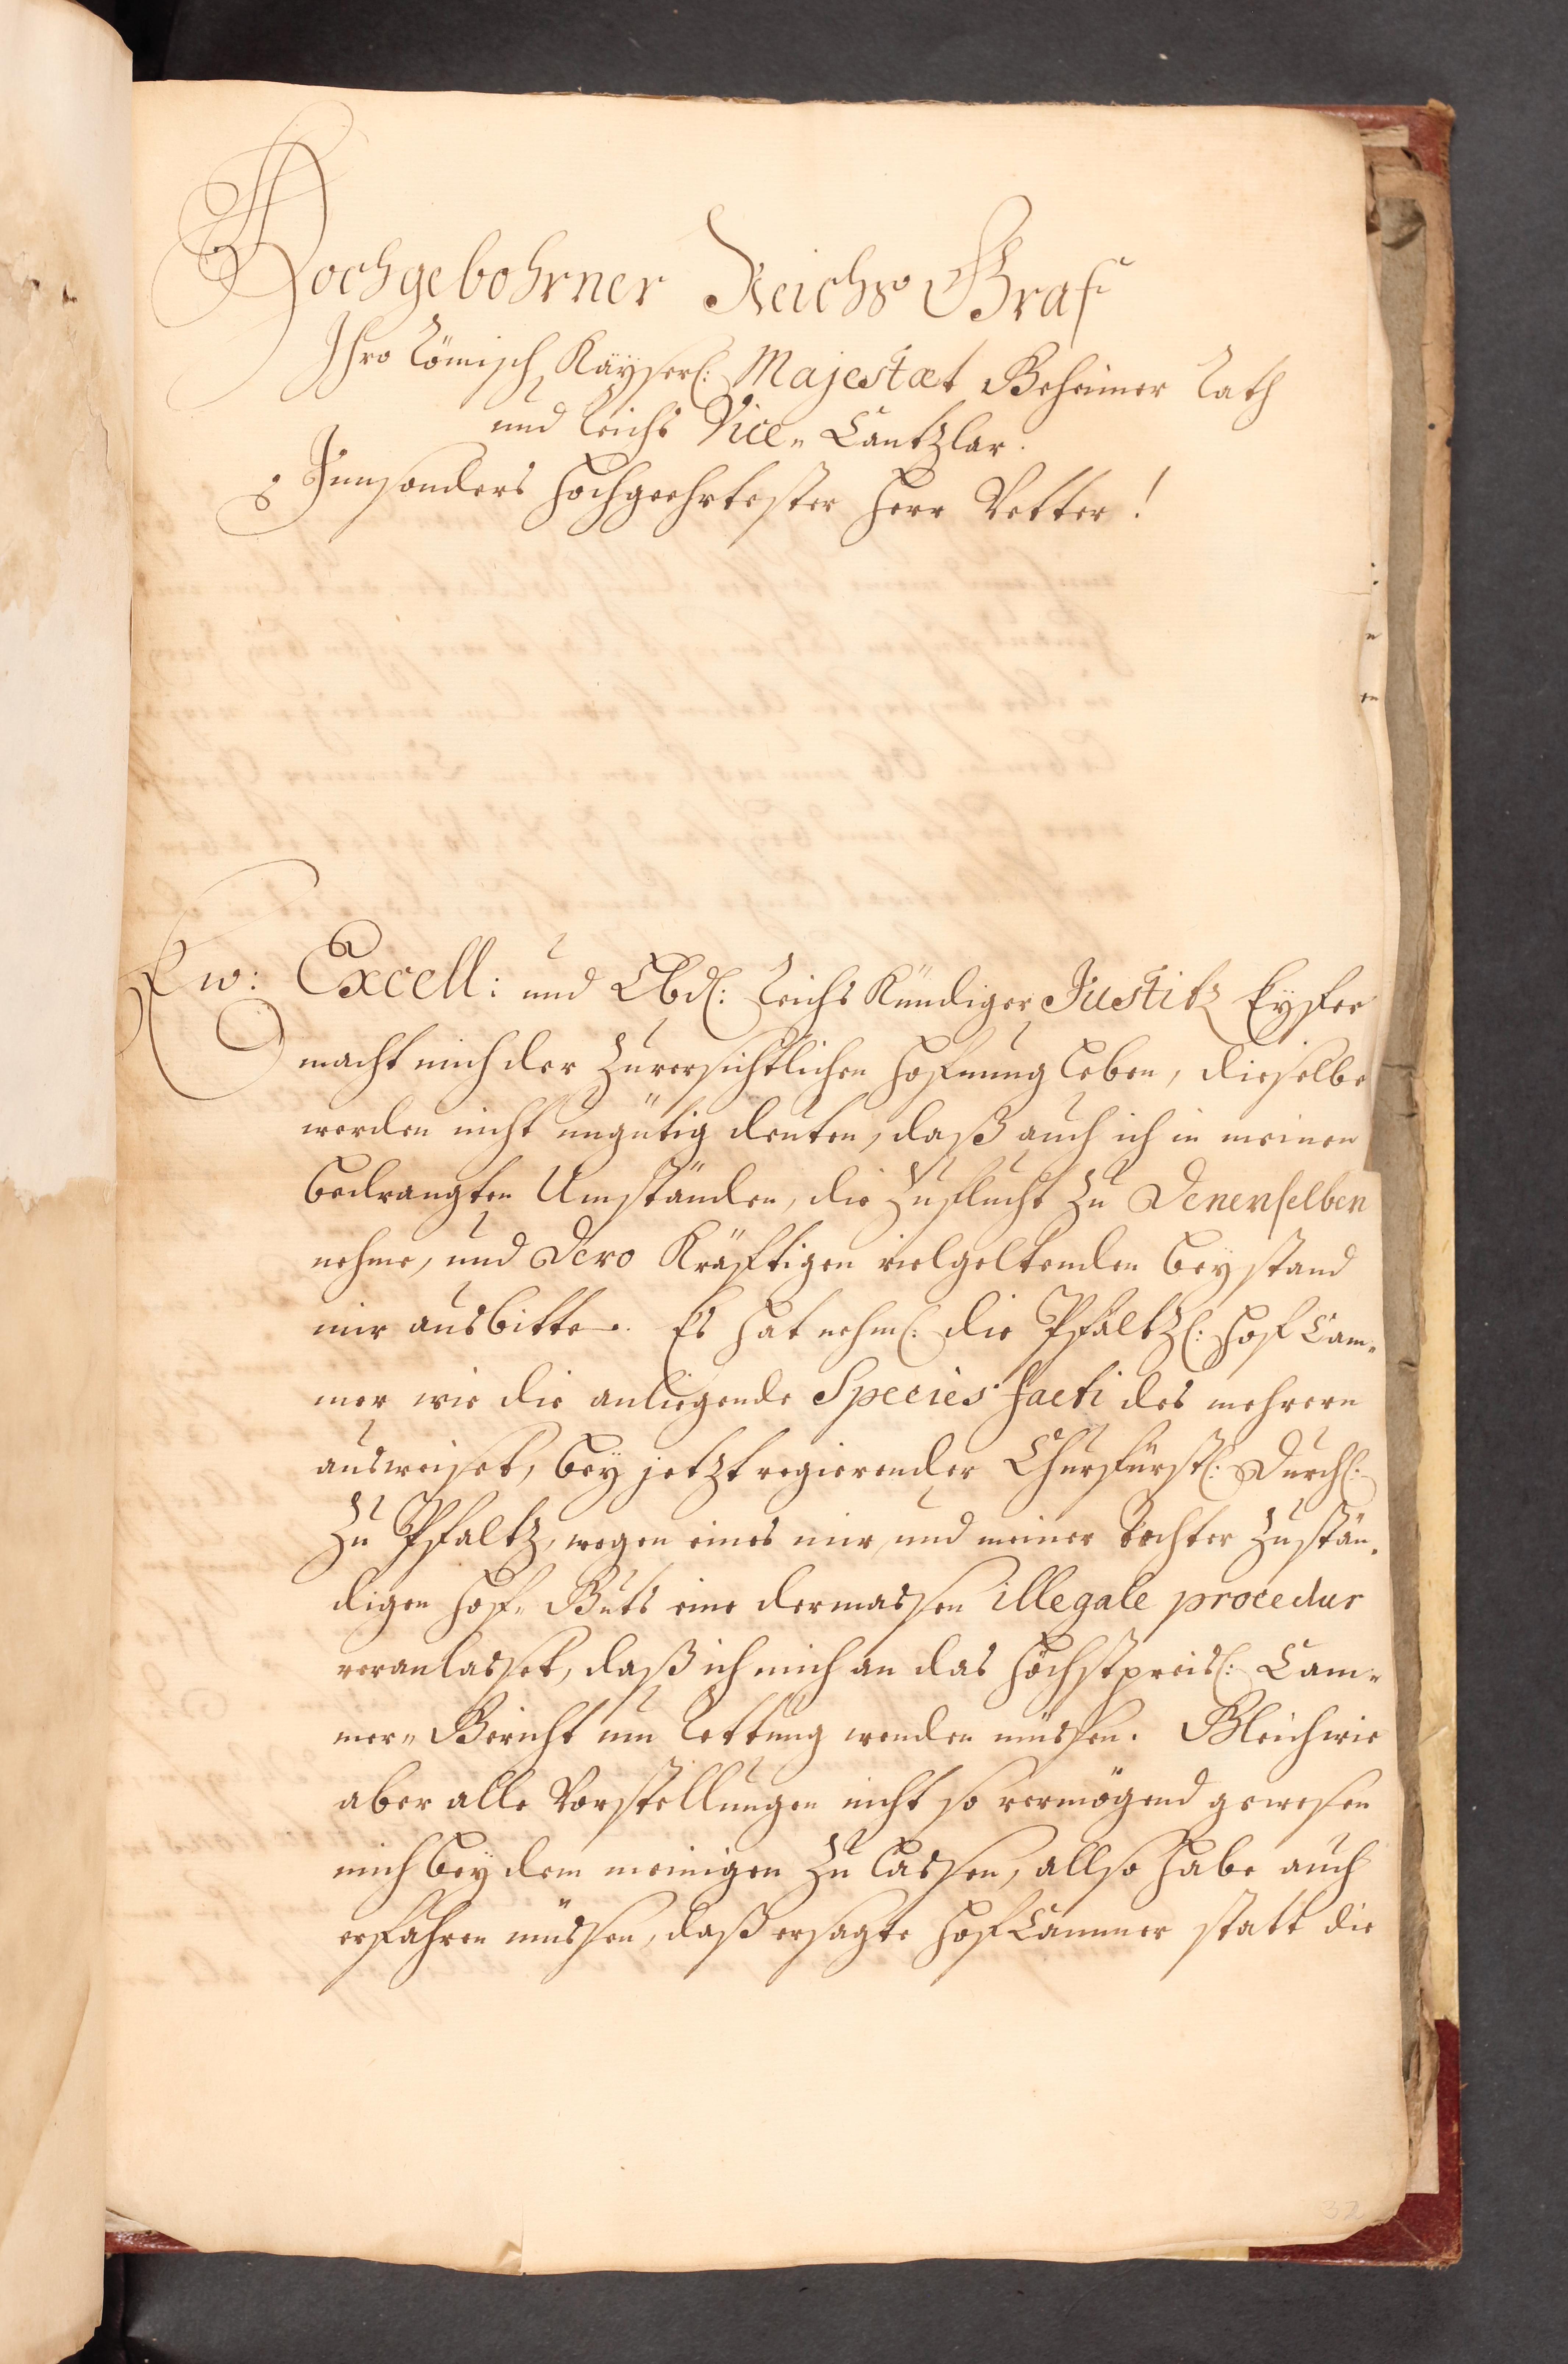 Hochgebohrner Reichs Graf
Ihro Römisch Käyserl: Majestæt Geheimer Rath
und Reichs Vice„ Cantzlar.
Innsonders Hochgeehrtester Herr Vetter!
Ew: Excell: und Lbd: Reichs Kündiger Justitz Eyfer
macht mich der Zuversichtlichen Hofnung leben, dieselbe
werden nicht ungütig deuten, daß auch ich in meinen
bedrangten Umständen, die Zuflucht Zu Denenselben
nehme, und Dero Kräftigen vielgeltenden beystand
mir ausbitte. Es hat nehml: die Pfältzl: Hof Cam„
mer wie die anliegende Species facti des mehrern
ausweiset, bey jetzt regierender Churfürstl: Durchl:
Zu Pfaltz, wegen eines mir, und meiner Tochter Zustän„
digen Hof„ Guts eine dermassen illegale procedur
veranlasset, daß ich mich an das Höchstpreisl: Cam„
mer„ Gericht um Rettung wenden müssen. Gleichwie
aber alle Vorstellungen nicht so vermögend gewesen
mich bey dem meinigen Zu lassen, allso habe auch
erfahren müssen, daß ersagte Hof Cammer statt die
32